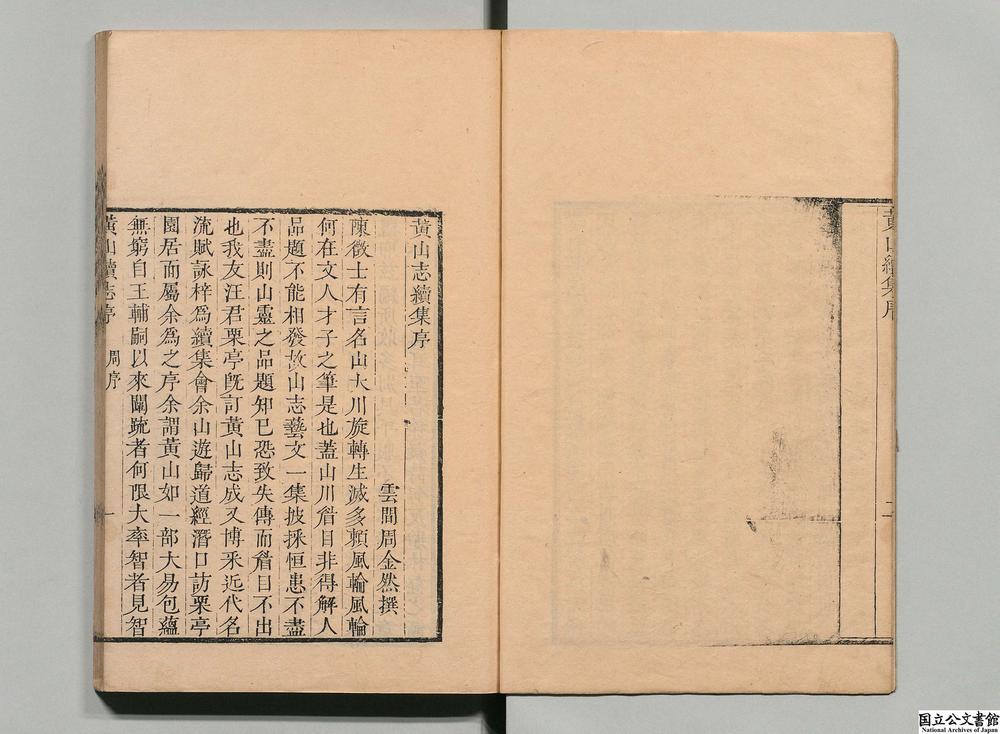 黃山續集序
二
黃山志續集序
雲間周金然撰
陳徵士有言名山大川旋轉生滅多賴風輪風輪
何在文人才子之筆是也蓋山川眉目非得解人
品題不能相發故山志藝文一集披採恒患不盡
不盡則山靈之品題知已恐致失傳而眉目不出
也我友汪君栗亭旣訂黃山志成又博釆近代名
流賦詠梓爲續集會余山遊歸道經潛口訪栗亭
園居而屬余爲之序余謂黃山如一部大易包蘊
無窮自王輔嗣以來闡疏者何限大率智者見智
黃山續志序
周序
一
国立公文書館
National Archives of Japan